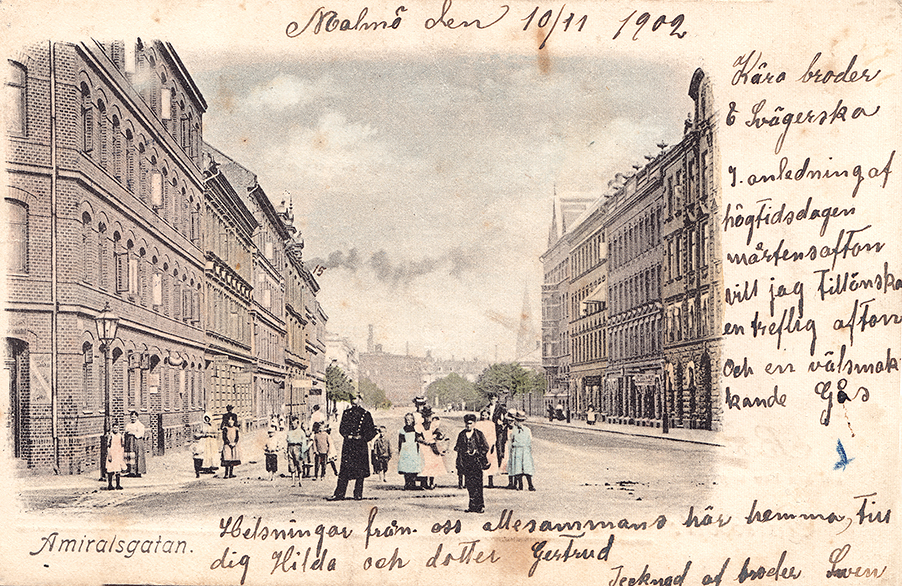 Malmö den 10/11 1902
Kära broder
& Svägerska
I. anledning af
högtidsdagen
mårtensafton
vill jag tillönska
en treflig afton
och en välsmak-
kande Gås
15
Helsningar från oss allesammans här hemma, till
dig Hilda och dotter Gertrud
Tecknad af broder Swen
Amiralsgatan.